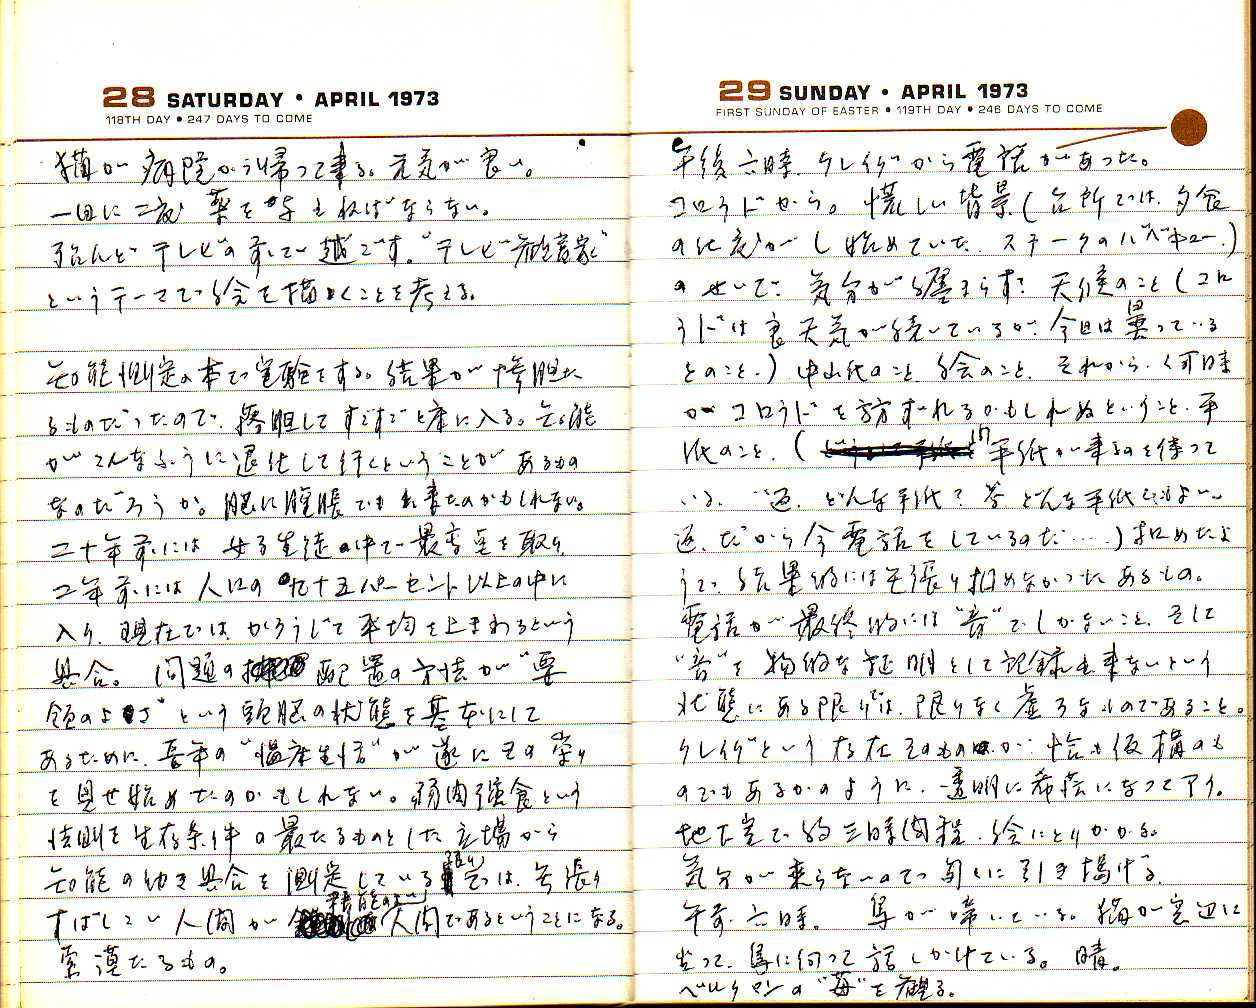 28 SATURDAY • APRIL 1973
118TH DAY • 247 DAYS TO COME
猫が病院から帰って来る。元気が良い。
一日に二度 薬を与えねばならない。
殆んどテレビの前で過です。"テレビ
というテーマで絵を描くことを考える。
知能測定の本で実験をする。結果が惨胆た
るものだったので、落胆してすごすごと床に入る。知能
がこんなふうに退化して行くということがあるもの
なのだろうか。脳に腫脹でも出来たのかもしれない。
二十年前には女子生徒の中で最高点を取り、
二年前には人口の九十五パーセント以上の中に
入り、現在では、かろうじて平均を上まわるという
具合。問題の 配置の方法が"要
領のよさ"という頭脳の状態を基本にして
あるために、吾等の"温床生活"が遂にその祟り
を見せ始めたのかもしれない。弱肉強食という
法則を生存条件の最たるものとした立場から
知能の働き具合を測定している限りでは、矢張り
すばしこい人間が 人間であるということになる。
索漠たるもの。
29 SUNDAY • APRIL 1973
FIRST SUNDAY OF EASTER • 119TH DAY • 246 DAYS TO COME
午後六時、クレイグから電話があった。
コロラドから。慌しい背景(台所では、夕食
の仕度がし始めていた、ステークのバベキュー。)
のせいで、気分が纏まらず、天候のこと(コロ
ラドは良天気が続いているが、今日は曇っている
とのこと。) のこと、絵のこと、それから、何時
かコロラドを訪ずれるかもしれぬということ、手
紙のこと、( 手紙が来るのを待って
いる、"返、どんな手紙? 答 どんな手紙でもよい。
返、だから今電話をしているのだ……)拍めたよ
うで、結果的には矢張り拍めなかったあるもの。
電話が最終的には"音"でしかないこと、そして
"音"を物的な証明として記録出来ないという
状態にある限りでは、限りなく虚ろなものであること。
クレイグという存在そのものが、恰も仮構のも
のでもあるかのように、透明に希薄になってアう。
地下室で約三時間程、絵にとりかかる。
気分が乗らないので匆々に引き揚げる。
午前六時。鳥が啼いている。猫が窓辺に
坐って、鳥に向って話しかけている。晴。
ベルイマンの"苺"を観る。